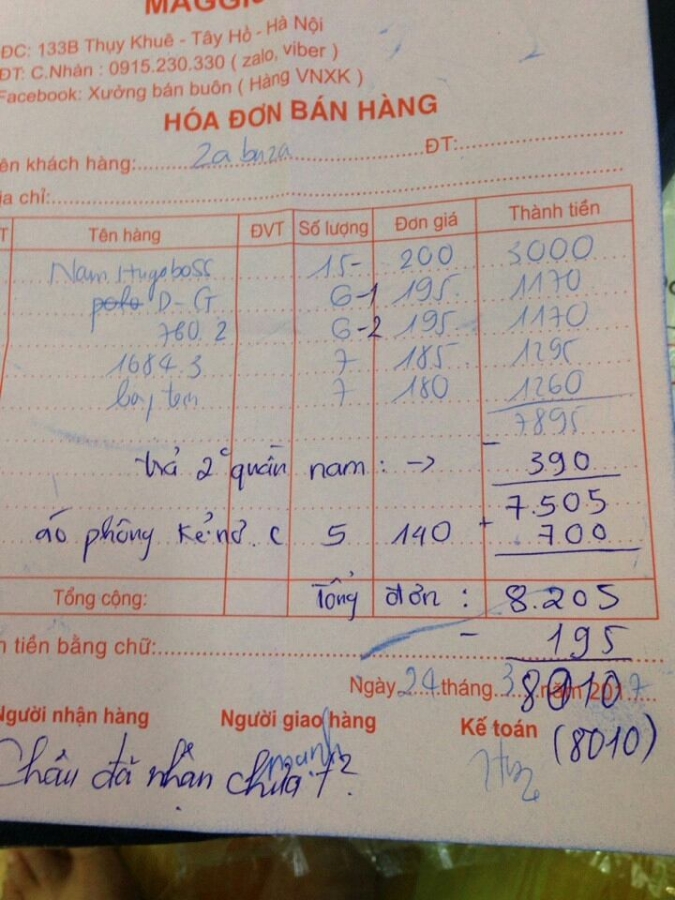 MAGGI
ĐC: 133B Thụy Khuê - Tây Hồ - Hà Nội
ĐT: C.Nhân : 0915.230.330 ( zalo, viber )
Facebook: Xưởng bán buôn ( Hàng VNXK )
HÓA ĐƠN BÁN HÀNG
ên khách hàng: 2a buza ĐT:
ịa chỉ:
T Tên hàng ĐVT Số lượng Đơn giá Thành tiền
Nam Hugoboss 15- 200 3000
polo D-G 6-1 195 1170
760.2 6-2 195 1170
1684.3 7 185 1295
7 180 1260
7895
trả 2c quần nam : -> - 390
7.505
áo phông kẻ nơ. c 5 140 + 700
Tổng cộng: Tổng đơn : 8.205
n tiền bằng chữ: - 195
Ngày 24 tháng 3 năm 2017
8010
Người nhận hàng Người giao hàng Kế toán
(8010)
mạnh
Cháu đã nhận chưa ạ?